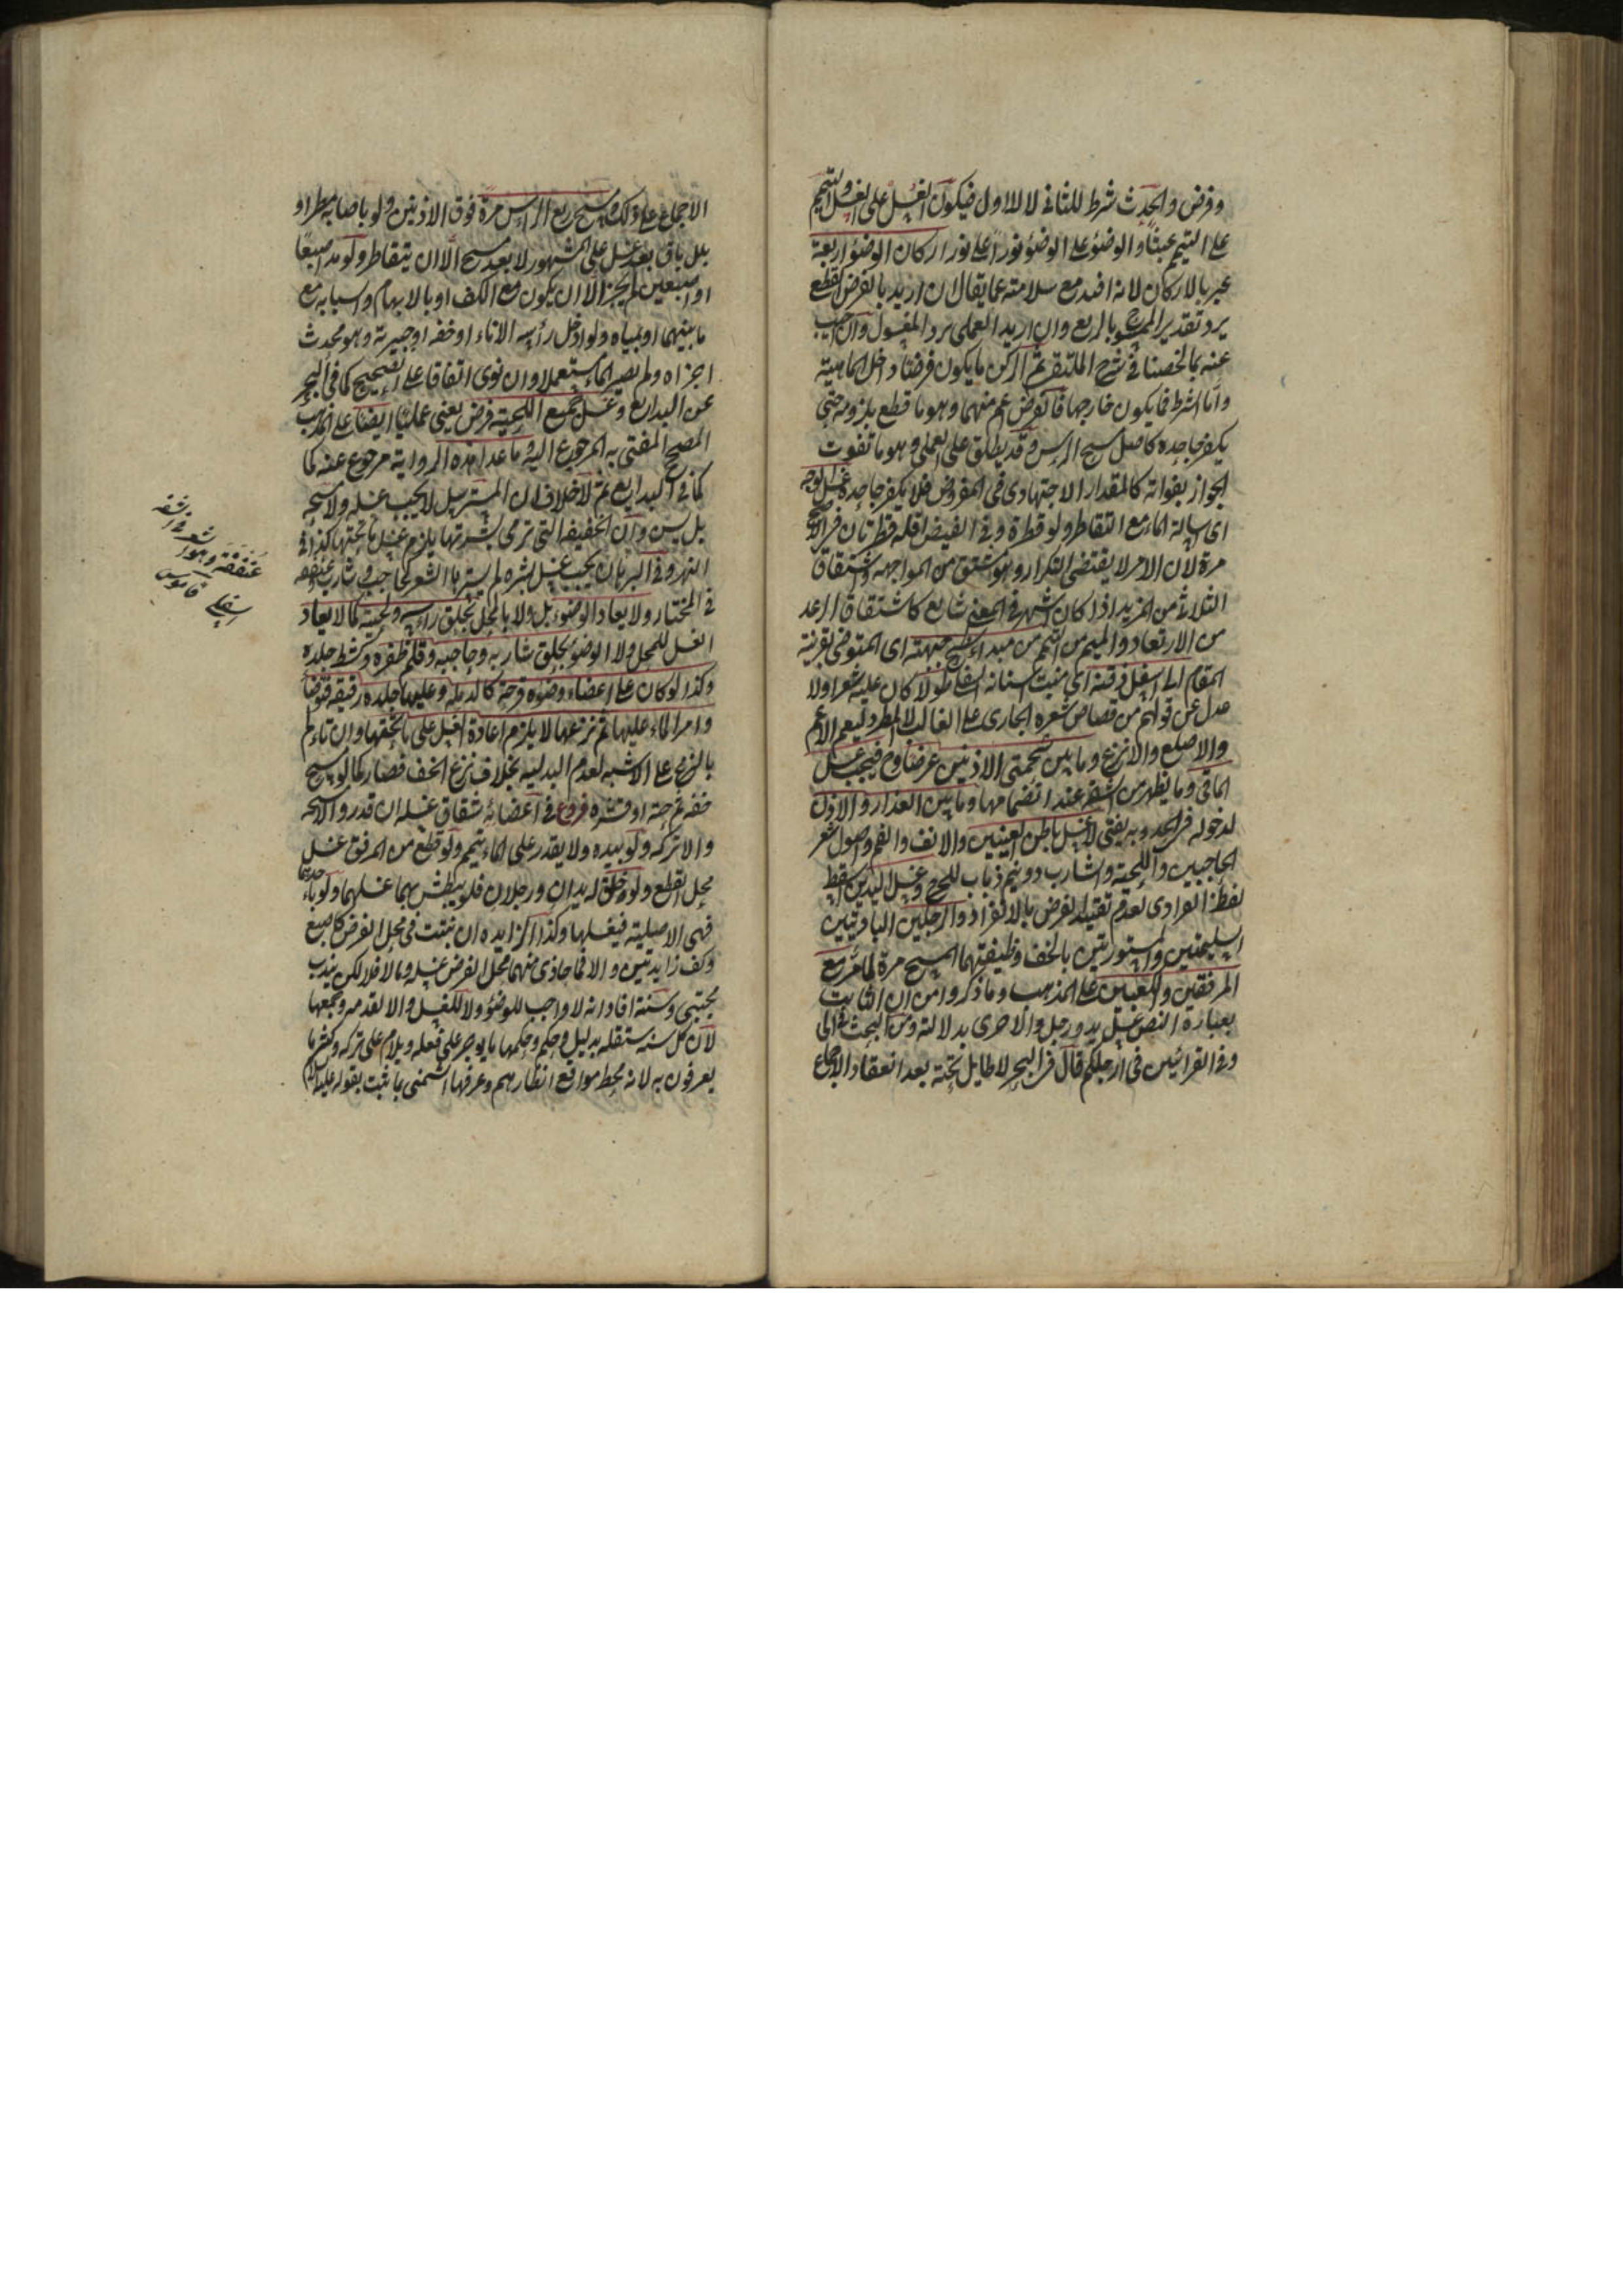 وفرض والحدث شرط للثاني لا للاول فيكون الغسل على الغسل والتيمم
على التيمم عبثا والوضوء على الوضوء نورا على نور اركان الوضوء اربعة
عبر بالاركان لانه افيد مع سلامته عما يقال ان اريد بالفرض القطع
يرد تقدير الممسوح بالربع وان اريد العملي يرد المغسول وان اجيب
عنه بما لخصناه في شرح الملتقى ثم الركن ما يكون فرضا داخل الماهية
واما الشرط فما يكون خارجها فالفرض اعم منهما وهو ما قطع بلزومه حتى
يكفر جاحده كاصل مسح الراس وقد يطلق على العملي وهو ما تفوت
الجواز بفواته كالمقدار الاجتهادي في المفروض فلا يكفر جاحده غسل الوجه
اي اسالة الماء مع التقاطر ولو قطرة وفي الفيض اقله قطرتان في الاصح
مرة لان الامر لا يقتضي التكرار وهو مشتق من المواجهة واشتقاق
الثلاثي من المزيد اذا كان اشهر في المعنى شايع كاشتقاق الرعد
من الارتعاد واليم من التيمم من مبدا سطح جبهته اي المتوضي بقرينة
المقام الى اسفل ذقنه اي منبت اسنانه السفلى طولا كان عليه شعر اولا
عدل عن قولهم من قصاص شعره الجاري على الغالب الى المطرد ليعم الاغم
والاصلع والانزع وما بين شحمتي الاذنين عرضا وح فيجب غسل
المآقي وما يظهر من الشفة عند انضمامها وما بين العذار والاذن
لدخوله في الحد وبه يفتى لا غسل باطن العينين والانف والفم واصول شعر
الحاجبين واللحية والشارب وونيم ذباب للحرج وغسل اليدين اسقط
لفظ فرادى لعدم تقييد الفرض بالانفراد والرجلين الباديتين
السليمتين والمستورتين بالخف وظيفتهما المسح مرة لما مر مع
المرفقين والكعبين على المذهب وما ذكروا من ان الثابت
بعبارة النص غسل يد ورجل والاخرى بدلالته ومن البحث في الى
وفي القرائتين في ارجلكم قال في البحر لا طايل تحته بعد انعقاد الاجماع
الاجماع على ذلك ومسح ربع الراس مرة فوق الاذنين ولو باصابة مطر او
بلل باق بعد غسل على المشهور لا بعد مسح الا ان يتقاطر ولو مد اصبعا
او اصبعين لم يجز الا ان يكون مع الكف او بالابهام والسبابة مع
ما بينهما او بمياه ولو ادخل رأسه الاناء او خفه او جبيرته وهو محدث
اجزاه ولم يصير الماء مستعملا وان نوى اتفاقا على الصحيح كما في البحر
عن البدايع وغسل جميع اللحية فرض يعني عمليا ايضا على المذهب
الصحيح المفتى به المرجوع اليه وما عدا هذه الرواية مرجوع عنه كما
كما في البدايع ثم لا خلاف ان المسترسل لا يجب غسله ولا مسحه
بل يسن وان الخفيفة التي ترى بشرتها يلزم غسل ما تحتها كذا في
النهر وفي البرهان يجب غسل بشرة لم يسترها الشعر كحاجب وشارب وعنفقة
في المختار ولا يعاد الوضوء بل ولا بل المحل بحلق راسه ولحيته كما لا يعاد
الغسل للمحل ولا الوضوء بحلق شاربه وحاجبه وقلم ظفره وكشط جلده
وكذا لو كان على اعضاء وضوءه قرحة كالدملة وعليها جلدة رقيقة فتوضأ
وامر الماء عليها ثم نزعها لا يلزم اعادة الغسل على ما تحتها وان تالم
بالنزع على الاشبه لعدم البدلية بخلاف نزع الخف فصار كما لو مسح
خفه ثم حته او قشره فروع في اعضائه شقاق غسله ان قدر والا مسحه
والا تركه ولو بيده ولا يقدر على الماء تيمم ولو قطع من المرفق غسل
محل القطع ولو خلق له يدان ورجلان فلو يبطش بهما غسلهما ولو باحديهما
فهي الاصلية فيغسلها وكذا الزايدة ان نبتت في محل الفرض كاصبع
وكف زايدتين والا فما حاذى منهما محل الفرض غسله وما لا فلا لكن يندب
مجتبى وسننه افاد انه لا واجب للوضوء ولا للغسل والا لقدمه وجمعها
لان كل سنة مستقلة بدليل وحكم وحكمها ما يوجر على فعله ويلام على تركه وكثيرا ما
يعرفون به لانه محط مواقع انظارهم وعرفها الشمني بما ثبت بقوله عليه
عنفقة وهو
شعر في الشفة
السفلى قاموس